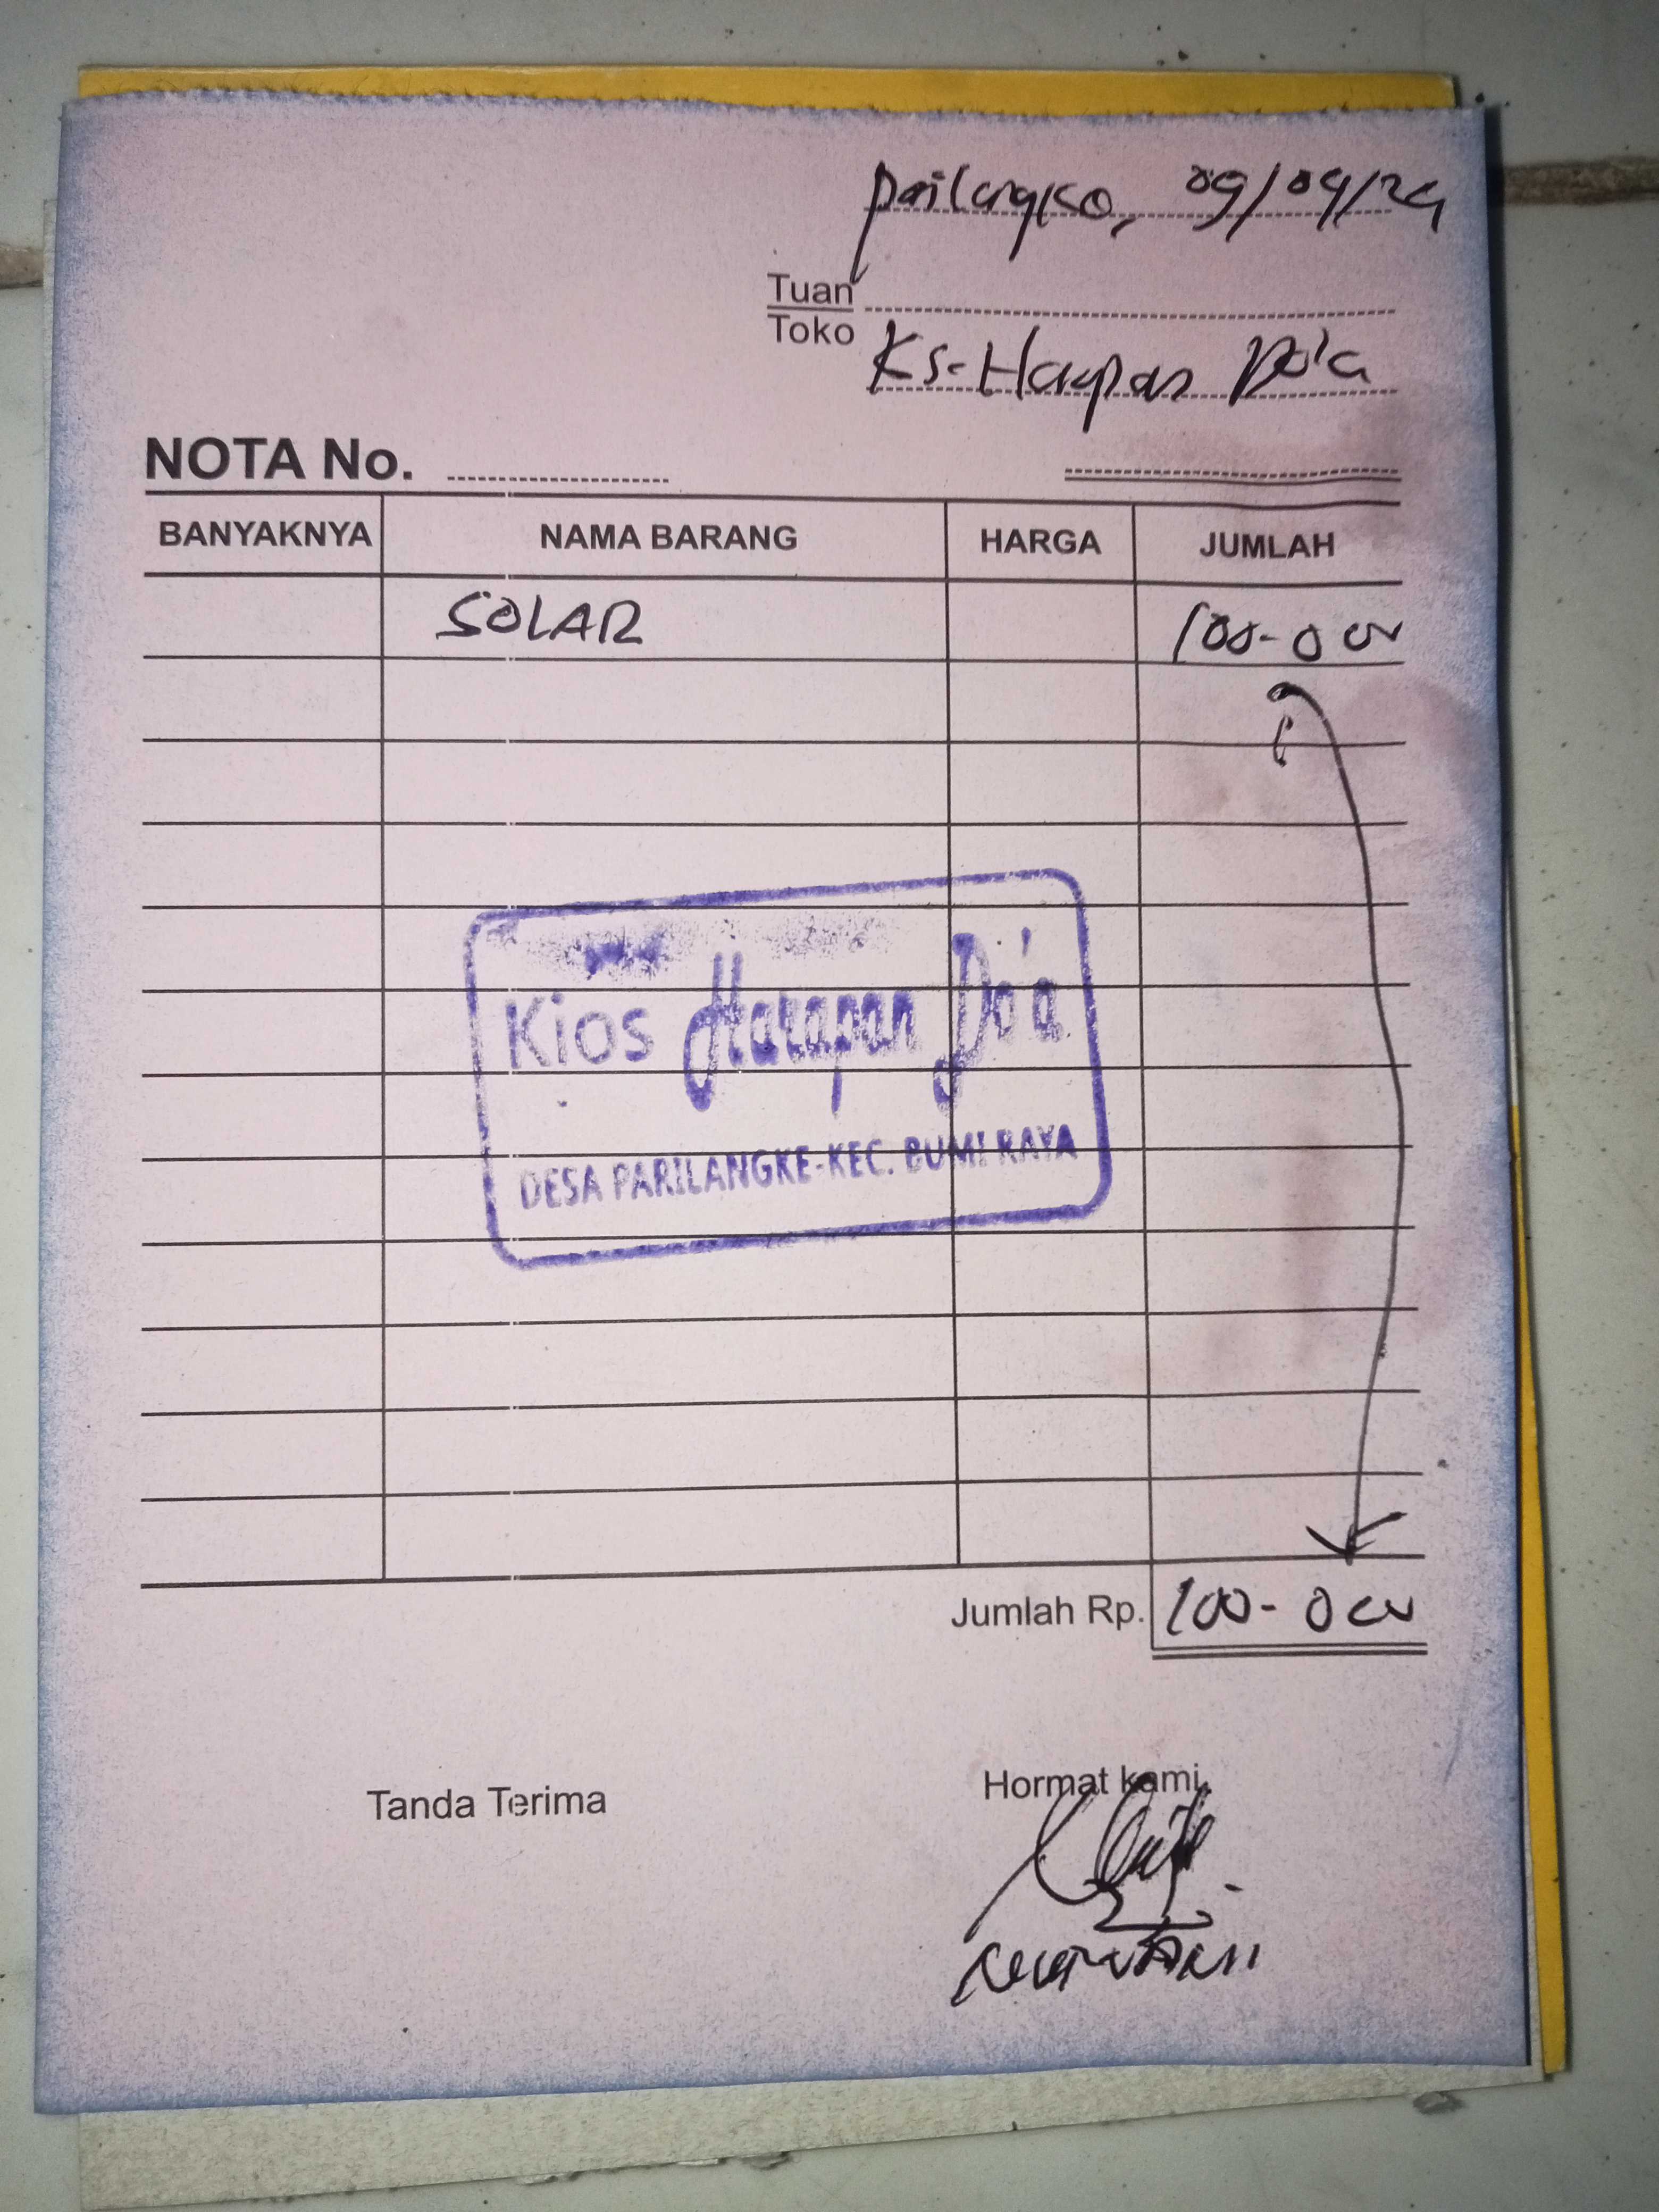 Parilangke, 09/09/24
Tuan
Toko Ks. Harapan Do'a
NOTA No.
BANYAKNYA NAMA BARANG HARGA JUMLAH
SOLAR 100-000
Kios Harapan Do'a
DESA PARILANGKE-KEC. BUMI RAYA
Jumlah Rp. 100-000
Tanda Terima Hormat kami,